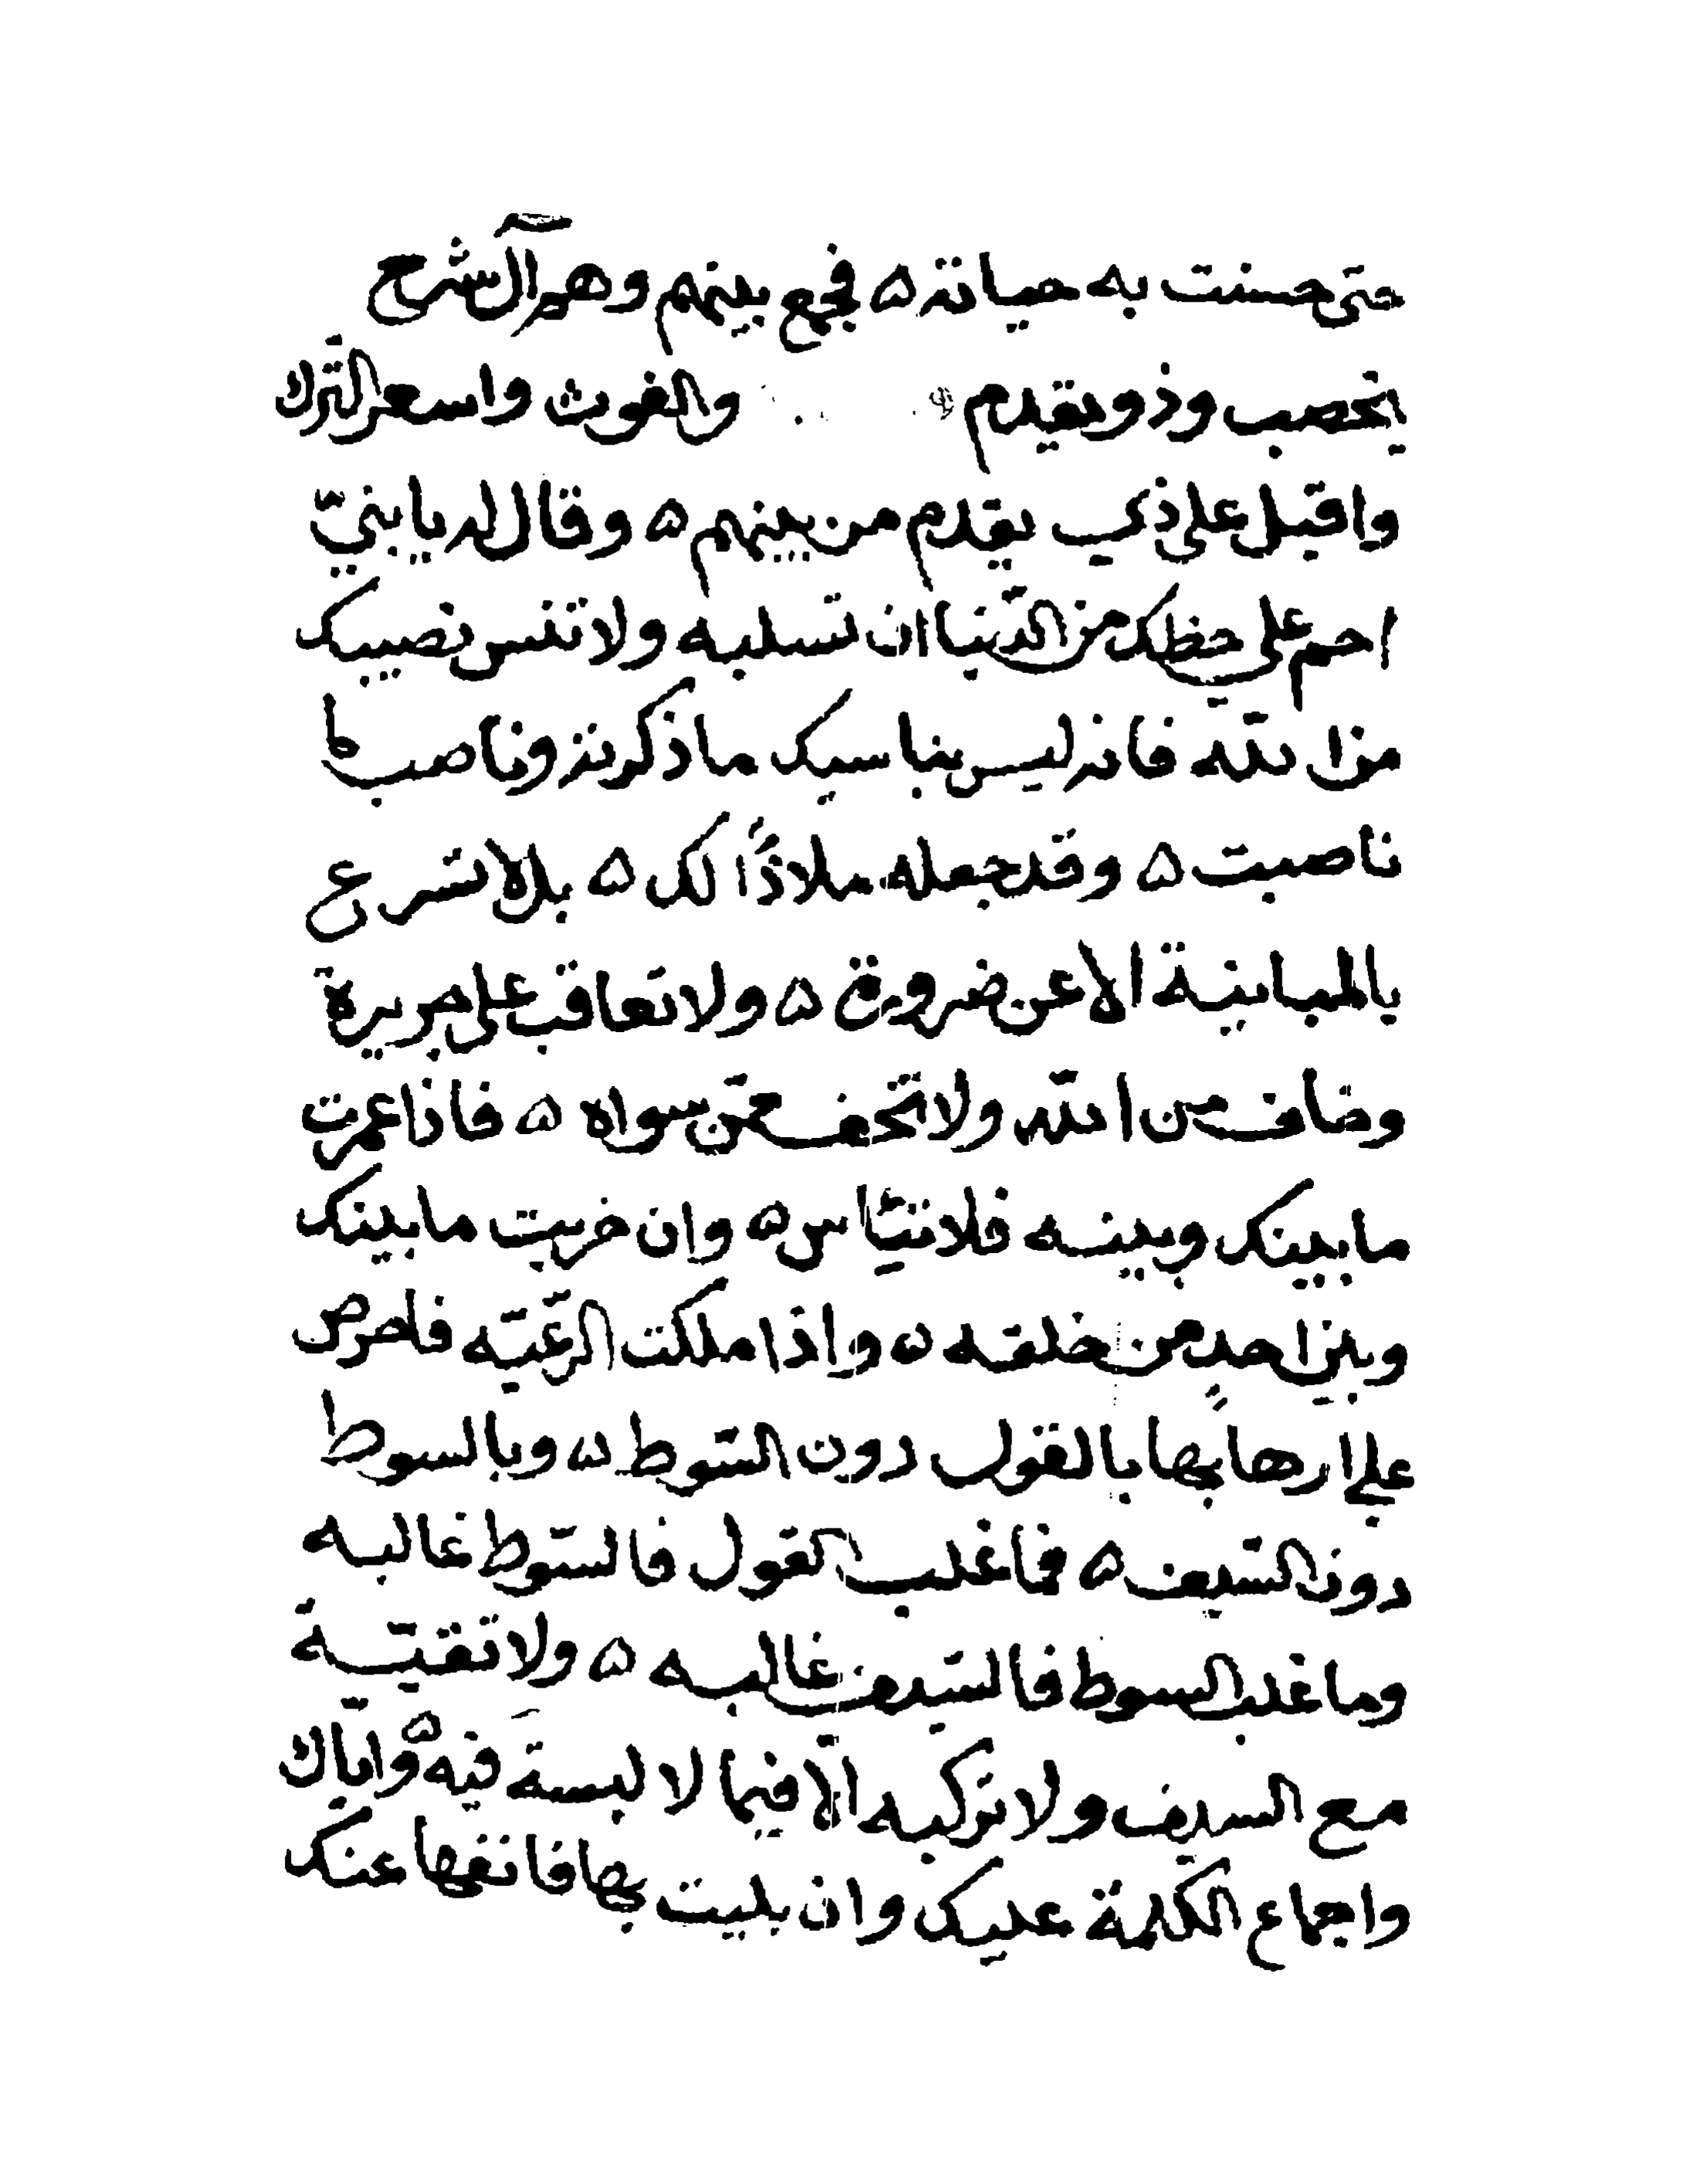 حتى حسنت به حياته ۵ فجمع بينهم وهو آل شرح
يحصب وذو يقدم والغوث واسعر الترك
واقبل على ذي يقدم من بينهم ۵ وقال له يا بنيّ
احم على حظك من الدّنيا ان تسلبه ولا تنس نصيبك
من الله فانه ليس بناسيك ما ذكرته وناصب ما
ناصبت ۵ وقد جعله ملاذًا لك ۵ بلا تسرع
بالمباينة الا عن ضرورة ۵ ولا تعاقب على جريرة
وخاف من الله ولا تخف ممّن سواه ۵ فاذا عمرت
ما بينك وبينه فلا تيأس ۵ وان خربت ما بينك
وبين احد من خلقه ۵ واذا ملكت الرعيّه فاحرص
على ارهابها بالقول دون السّوط ۵ وبالسوط
دون السّيف ۵ فما غلب القول فالسّوط غالبه
وما غلب السوط فالسّيف غالبه ۵ ولا تقيّة
مع السيف ولا تركبه الّا فيما لا لبسة فيه ۵ وايّاك
واجماع الكلمة عليك وان بليت بها فانفها عنك